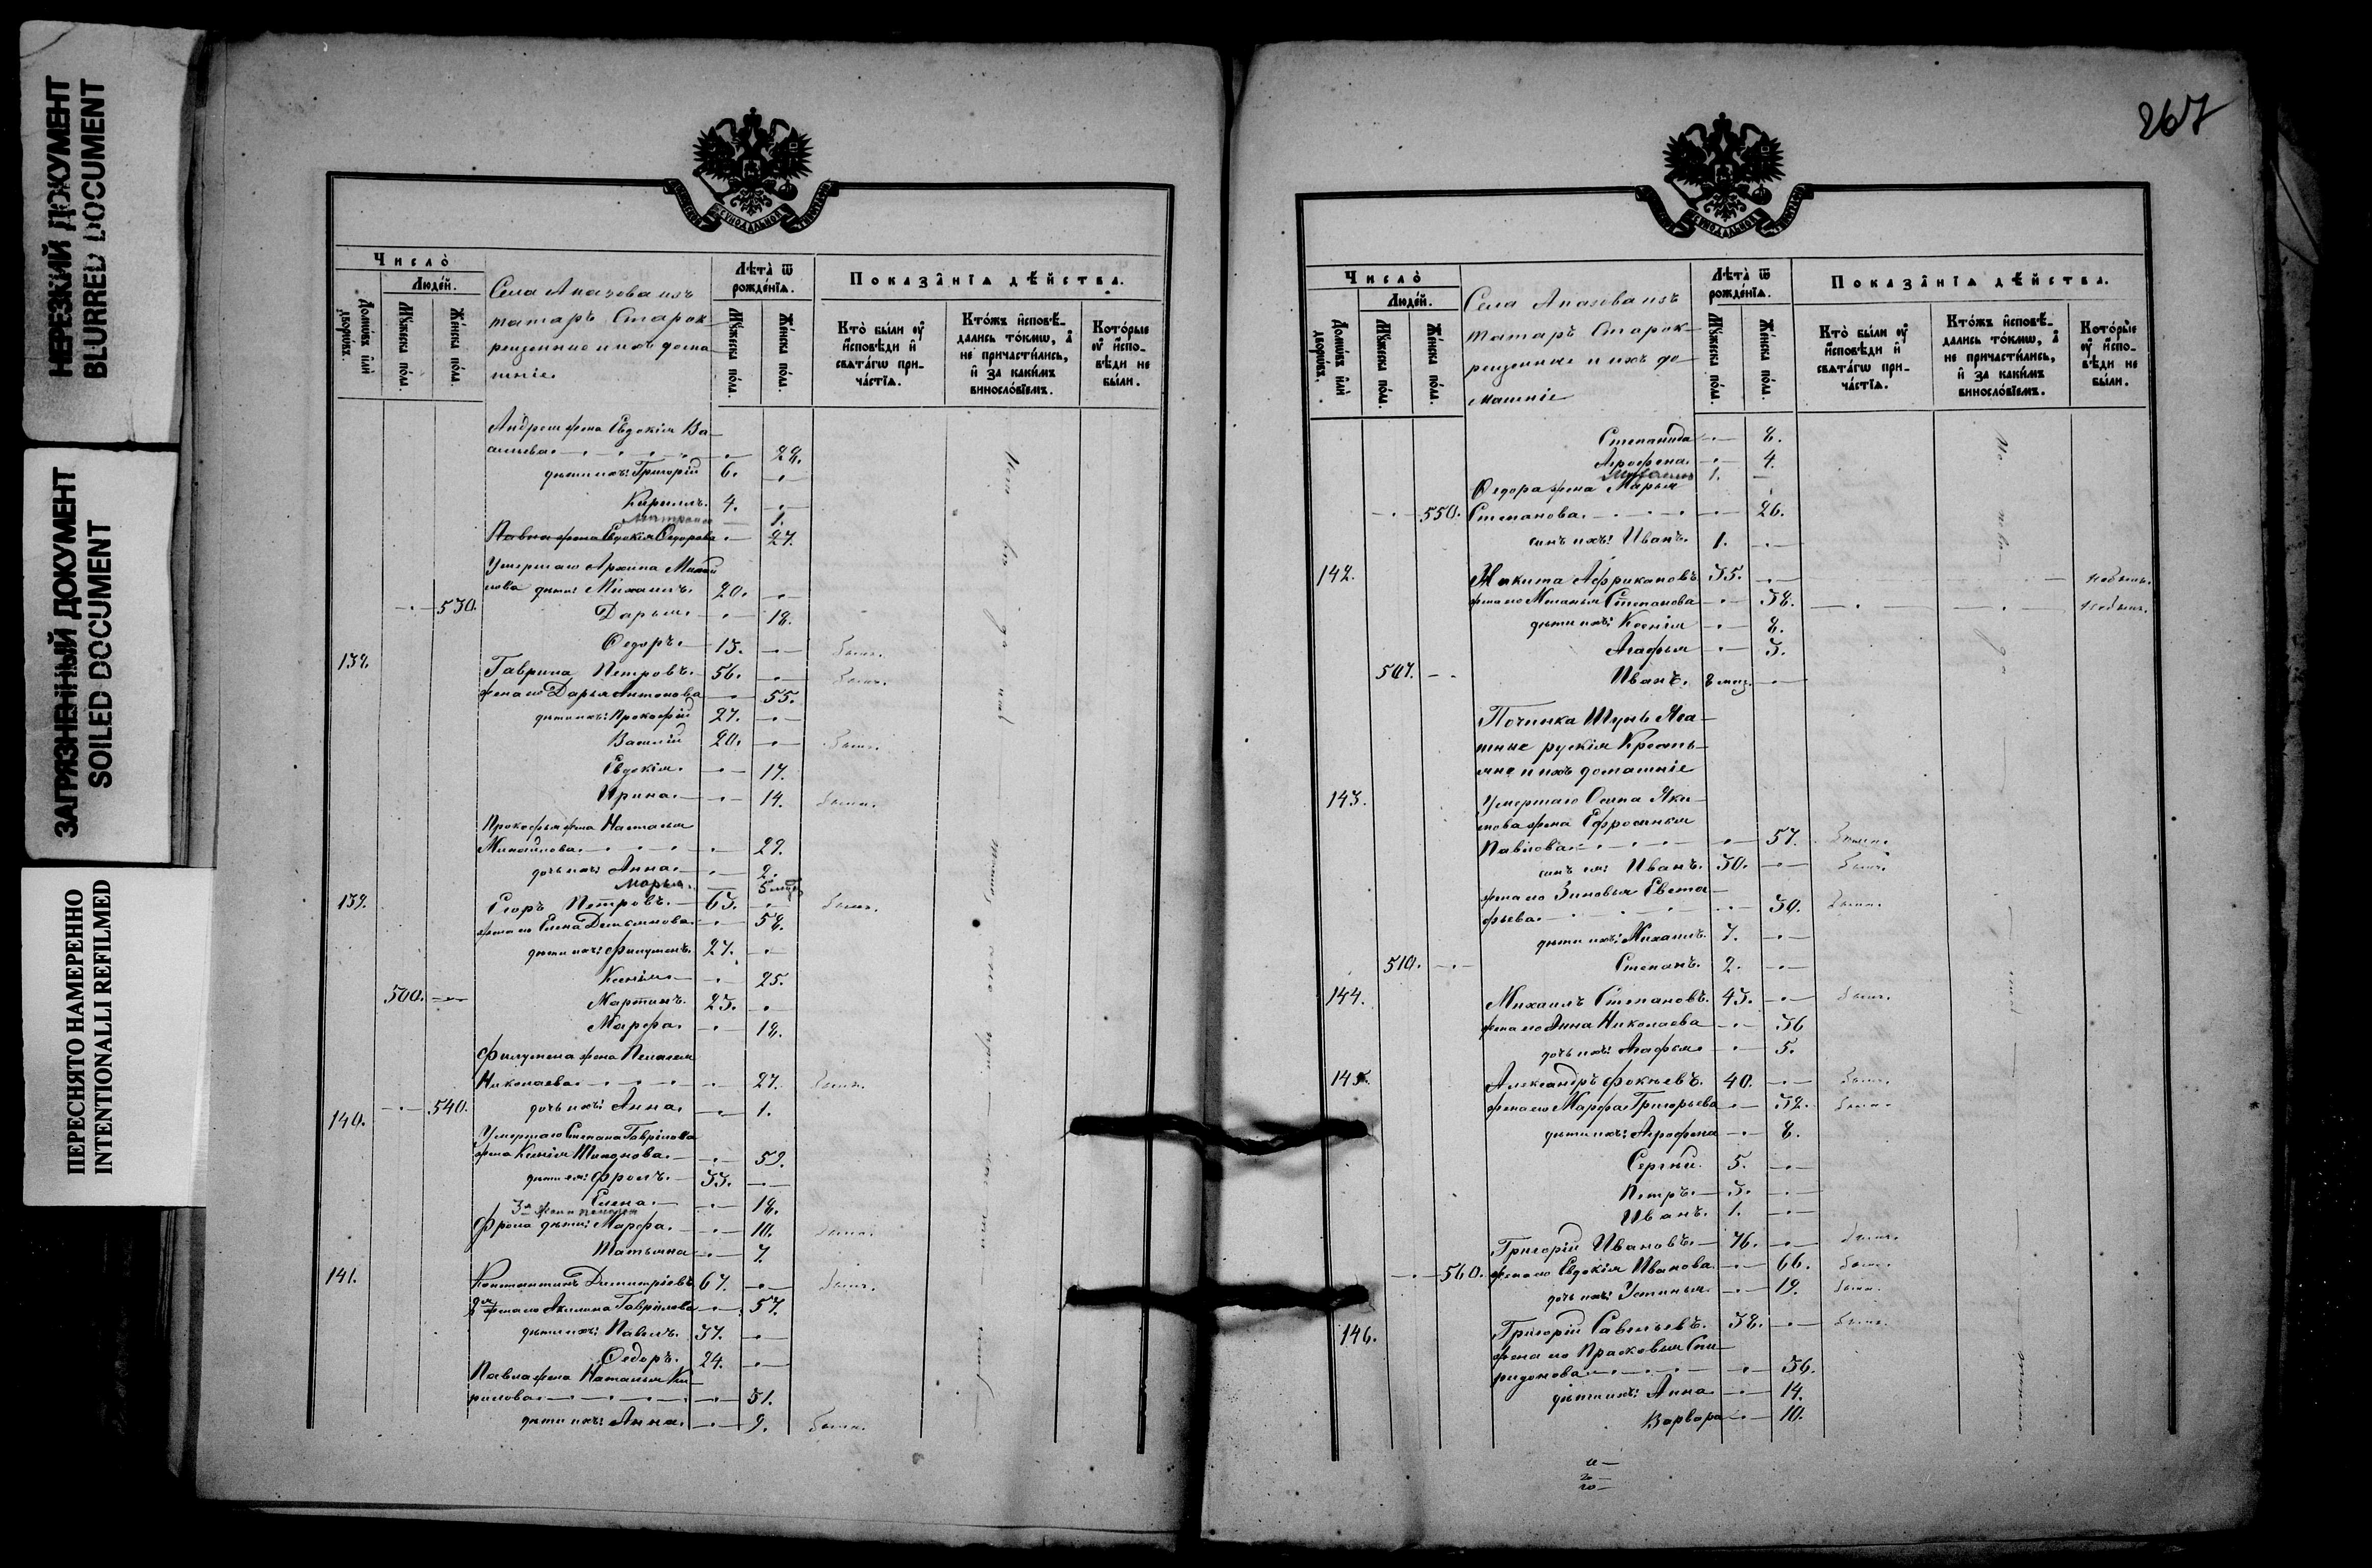 НЕРЕЗКИЙ ДОКУМЕНТ
BLURRED DOCUMENT
ЗАГРЯЗНЕННЫЙ ДОКУМЕНТ
SOILED DOCUMENT
ПЕРЕСНЯТО НАМЕРЕННО
INTENTIONALLI REFILMED
Число̀
Люде́й.
Домѡ́въ и҆лѝ дворѡ́въ.
Мꙋ́жеска по́ла.
Же́нска по́ла.
Села Апазова изъ
татаръ Старок-
рещенные и ихъ дома
шніе.
Лѣта̀ ѿ рожде́нїѧ.
Мꙋ́жеска по́ла.
Же́нска по́ла.
Показа̂нїѧ дѣ́йства.
Кто̀ бы́ли ᲂу҆
и҆́сповѣди и҆
свѧта́гѡ при-
ча́стїѧ.
Кто́жъ и҆сповѣ́-
дались то́кмѡ, а҆
не причасти́лись,
и҆ за каки́мъ
винослѡ́вїемъ.
Кото́рые
ᲂу҆ и҆́спо-
вѣди не
бы́ли.
Андрея жена Евдокія Ва-
сильева. 28.
дѣти ихъ: Григорій 6.
Кириллъ. 4.
Матрона 1.
Павла жена Евдокія Ѳедорова 27.
Умершаго Архипа Михай
лова дѣти: Михаилъ. 20.
530. Дарья. 18.
Ѳедоръ. 15. былъ.
138. Гаврила Петровъ. 56. былъ.
жена его Дарья Антонова 55.
дѣти ихъ: Прокофій 27.
Василій 20. былъ.
Евдокія. 17.
Ирина. 14. была.
Прокофья жена Наталья
Михайлова. 29.
дочь ихъ: Анна. 2.
Марья. 5 мѣс
139. Егоръ Петровъ. 63. былъ.
жена его Елена Демьянова. 58.
дѣти ихъ: Филумонъ. 27.
Ксенія 25.
500. Мартинъ. 23.
Марфа. 18.
Филумона жена Пелагея
Николаева. 27. была.
540. дочь ихъ: Анна. 1.
140. Умершаго Степана Гаврілова
жена Ксенія Тихонова. 59.
дѣти ея: Фролъ. 33.
Елена. 18.
Фрола дѣти: Марфа. 10. была.
Татьяна 7.
141. Константинъ Димитріевъ 67. былъ.
жена его Акилина Гаврілова 57.
дѣти ихъ: Павелъ. 37.
Ѳедоръ. 24.
Павла жена Наталья Ки
рилова. 31.
дѣти ихъ: Анна. 9. была.
267
Число̀
Люде́й.
Домѡ́въ и҆лѝ дворѡ́въ.
Мꙋ́жеска по́ла.
Же́нска по́ла.
Села Апазова изъ
татаръ Старок-
рещенные и ихъ до-
машніе
Лѣта̀ ѿ рожде́нїѧ.
Мꙋ́жеска по́ла.
Же́нска по́ла.
Показа̂нїѧ дѣ́йства.
Кто̀ бы́ли ᲂу҆
и҆́сповѣди и҆
свѧта́гѡ при-
ча́стїѧ.
Кто́жъ и҆сповѣ́-
дались то́кмѡ, а҆
не причасти́лись,
и҆ за каки́мъ
винослѡ́вїемъ.
Кото́рые
ᲂу҆ и҆́спо-
вѣди не
бы́ли.
Степанида 8.
Агрофена. 4.
1.
Ѳедора жена Марья
550. Степанова. 26.
сынъ ихъ: Иванъ. 1.
142. Никита Африкановъ 35. небылъ.
жена его Маланья Степанова 38. небыла.
дѣти ихъ: Ксенія 8.
Агафья 3.
507. Иванъ. 8 мѣс.
Починка
рускія Кресть-
яне и ихъ домашніе
143. Умершаго Осипа Яки-
мова жена Ефросинья
Павлова. 57. была.
сынъ ея: Иванъ. 30. былъ.
жена его Зиновья Евста-
фьева. 30. была.
дѣти ихъ: Михаилъ. 7.
510. Степанъ. 2.
144. Михаилъ Степановъ. 43. былъ.
жена его Анна Николаева 36
дочь ихъ: Агафья. 5.
145. Александръ Фокѣевъ. 40. былъ.
жена его Марфа Григорьева 38. была.
дѣти ихъ: Агрофена 8.
Сергѣй. 5.
Петръ. 3.
Иванъ. 1.
Григорій Ивановъ. 76. былъ.
560. жена его Евдокія Иванова. 66. была.
дочь ихъ: Устинья 19. была.
146. Григорій Савельевъ. 38. былъ.
жена его Прасковья Спи-
ридонова 36.
дѣти ихъ: Анна 14.
Варвара 10.